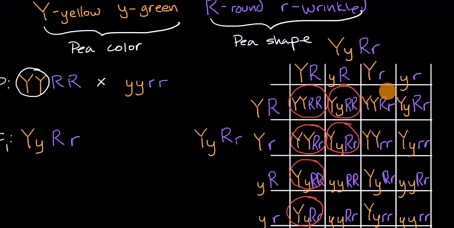 Y-yellow y-green R-round r-wrinkled
Pea color Pea shape
YyRr
YR yR Yr yr
P: YYRR × yyrr
YR YYRR YyRR YYRr YyRr
F₁: YyRr YyRr Yr YYRr YyRr YYrr Yyrr
yR YyRR yyRR YyRr yyRr
yr YyRr yyRr Yyrr yyrr